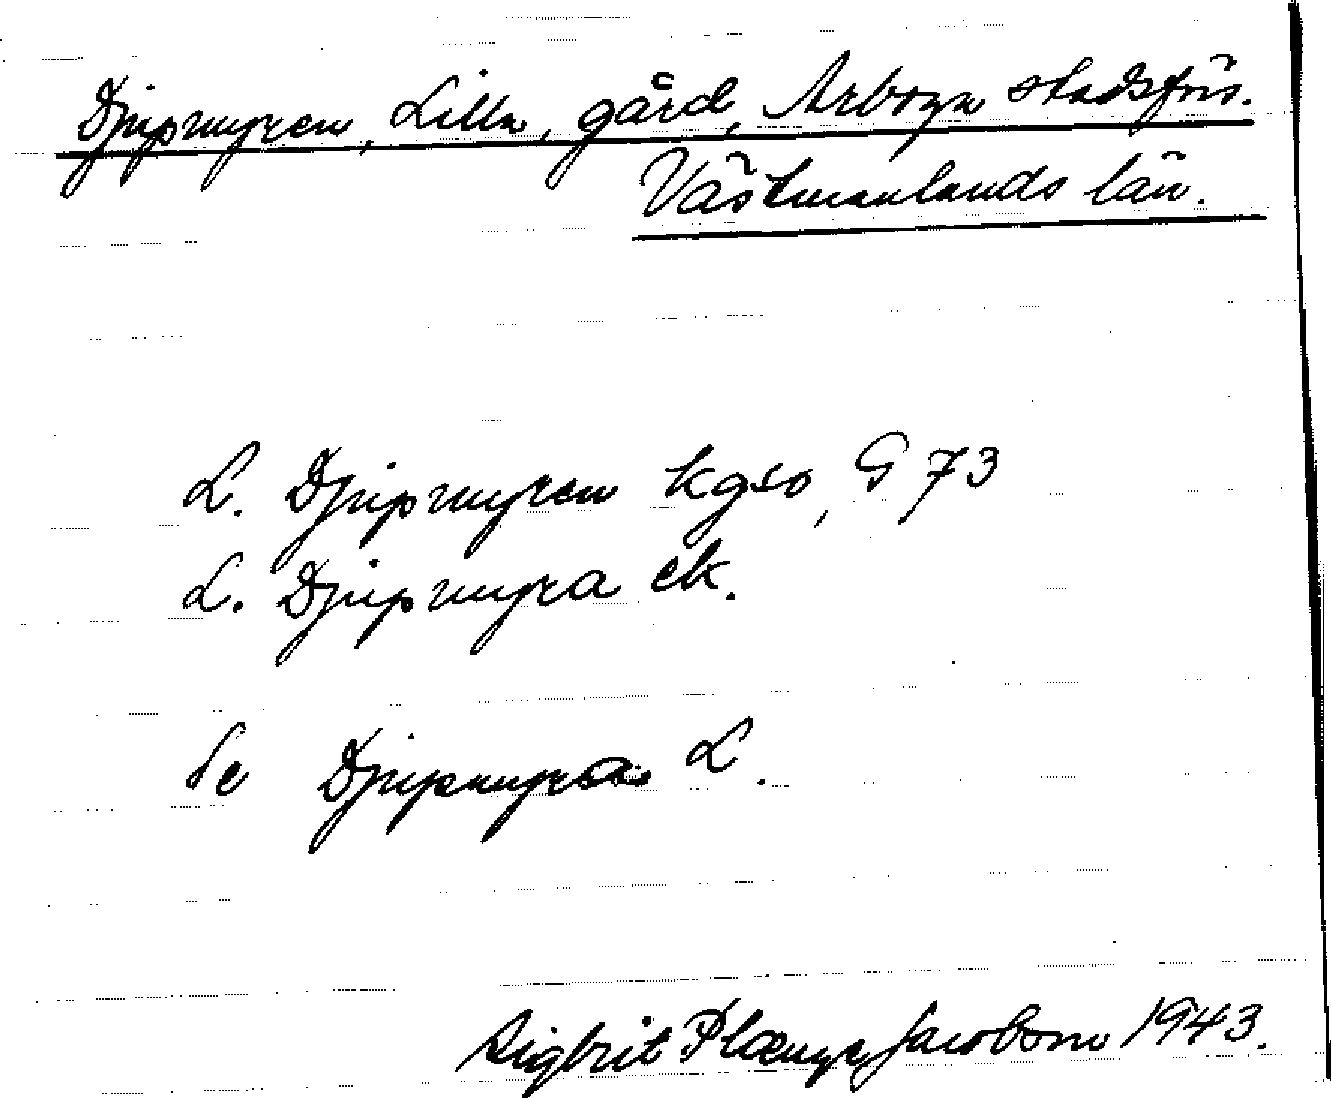 Djupmyren, Lilla, gård, Arboga stadsförs.
Västmanlands län.
L. Djupmyren kgso, G 73
L. Djupmyra ek.
Se Djupmyra L.
Sigbrit Plænge Jacobson 1943.